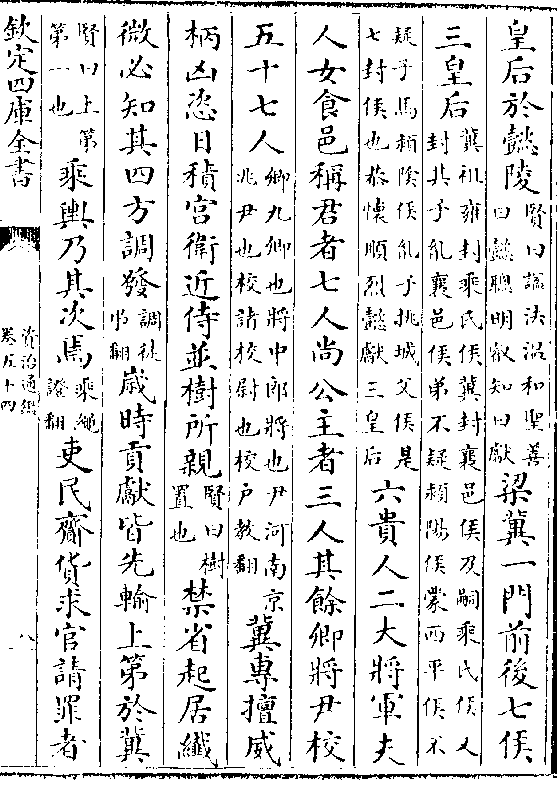 皇后於懿陵賢曰諡法温和聖善曰懿聰明叡知曰獻梁冀一門前後七侯
三皇后冀祖雍封乘氏侯冀封襄邑侯及嗣乘氏侯又封其子胤襄邑侯弟不疑潁陽侯蒙西平侯不疑子馬潁隂侯胤子挑城父侯是七封侯也恭懷順烈懿獻三皇后六貴人二大將軍夫
人女食邑稱君者七人尚公主者三人其餘卿將尹校
五十七人卿九卿也將中郎將也尹河南京兆尹也校諸校尉也校户教翻冀專擅威
柄凶恣日積宫衛近侍並樹所親賢曰樹置也禁省起居纎
微必知其四方調發調徒弔翻嵗時貢獻皆先輸上第於冀
賢曰上第第一也乘輿乃其次焉乘繩證翻吏民齎貨求官請罪者
欽定四庫全書
資治通鑑
卷五十四
八